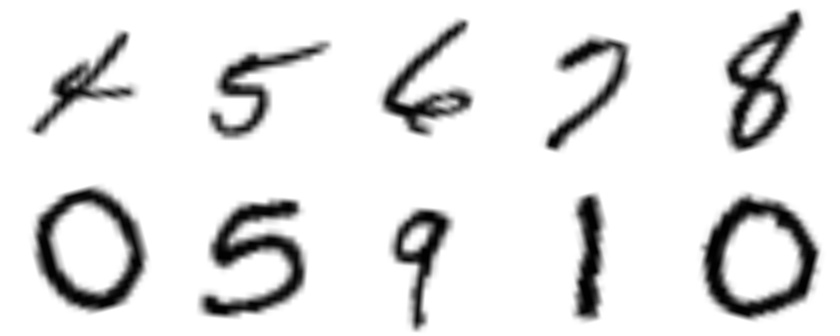 4 5 6 7 8
0 5 9 1 0